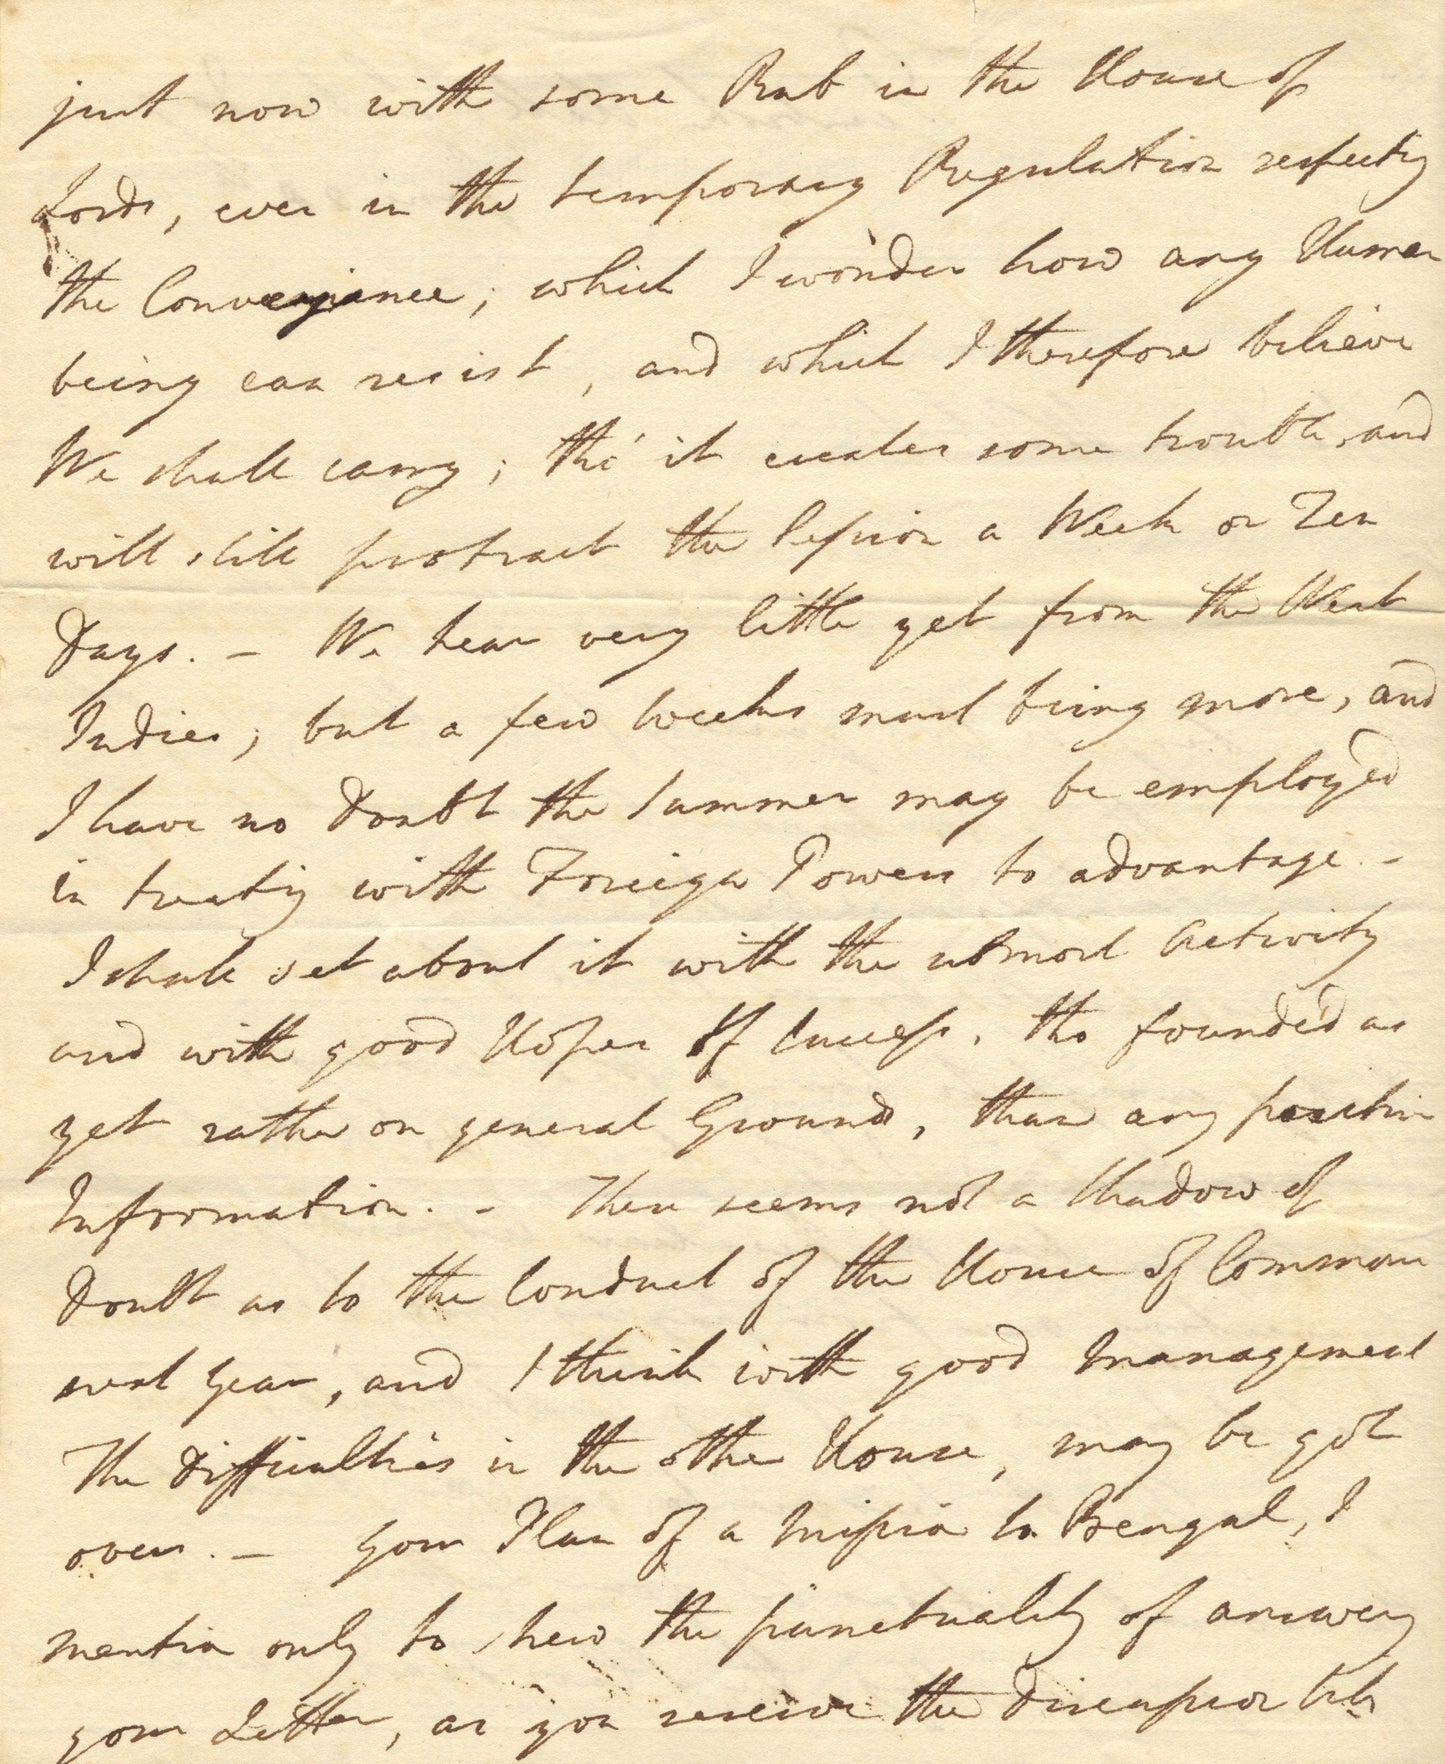 just now with some Rub in the House of
Lords, even in the temporary Regulation respecting
the Conveyance; which I wonder how any Human
being can resist, and which I therefore believe
We shall carry; tho' it creates some trouble, and
will still protract the Session a Week or Ten
Days. – We hear very little yet from the West
Indies, but a few Weeks must bring more, and
I have no Doubt the Summer may be employed
in treating with Foreign Powers to advantage. –
I shall set about it with the utmost Activity
and with good Hopes of Success, tho founded as
yet rather on general Grounds, than any positive
Information. – There seems not a Shadow of
Doubt as to the Conduct of the House of Commons
next Year, and I think with good management
The Difficulties in the other House, may be got
over. – Your Plan of a Mission to Bengal, I
mention only to shew the punctuality of answering
your Letter, as you receive the Discussion till